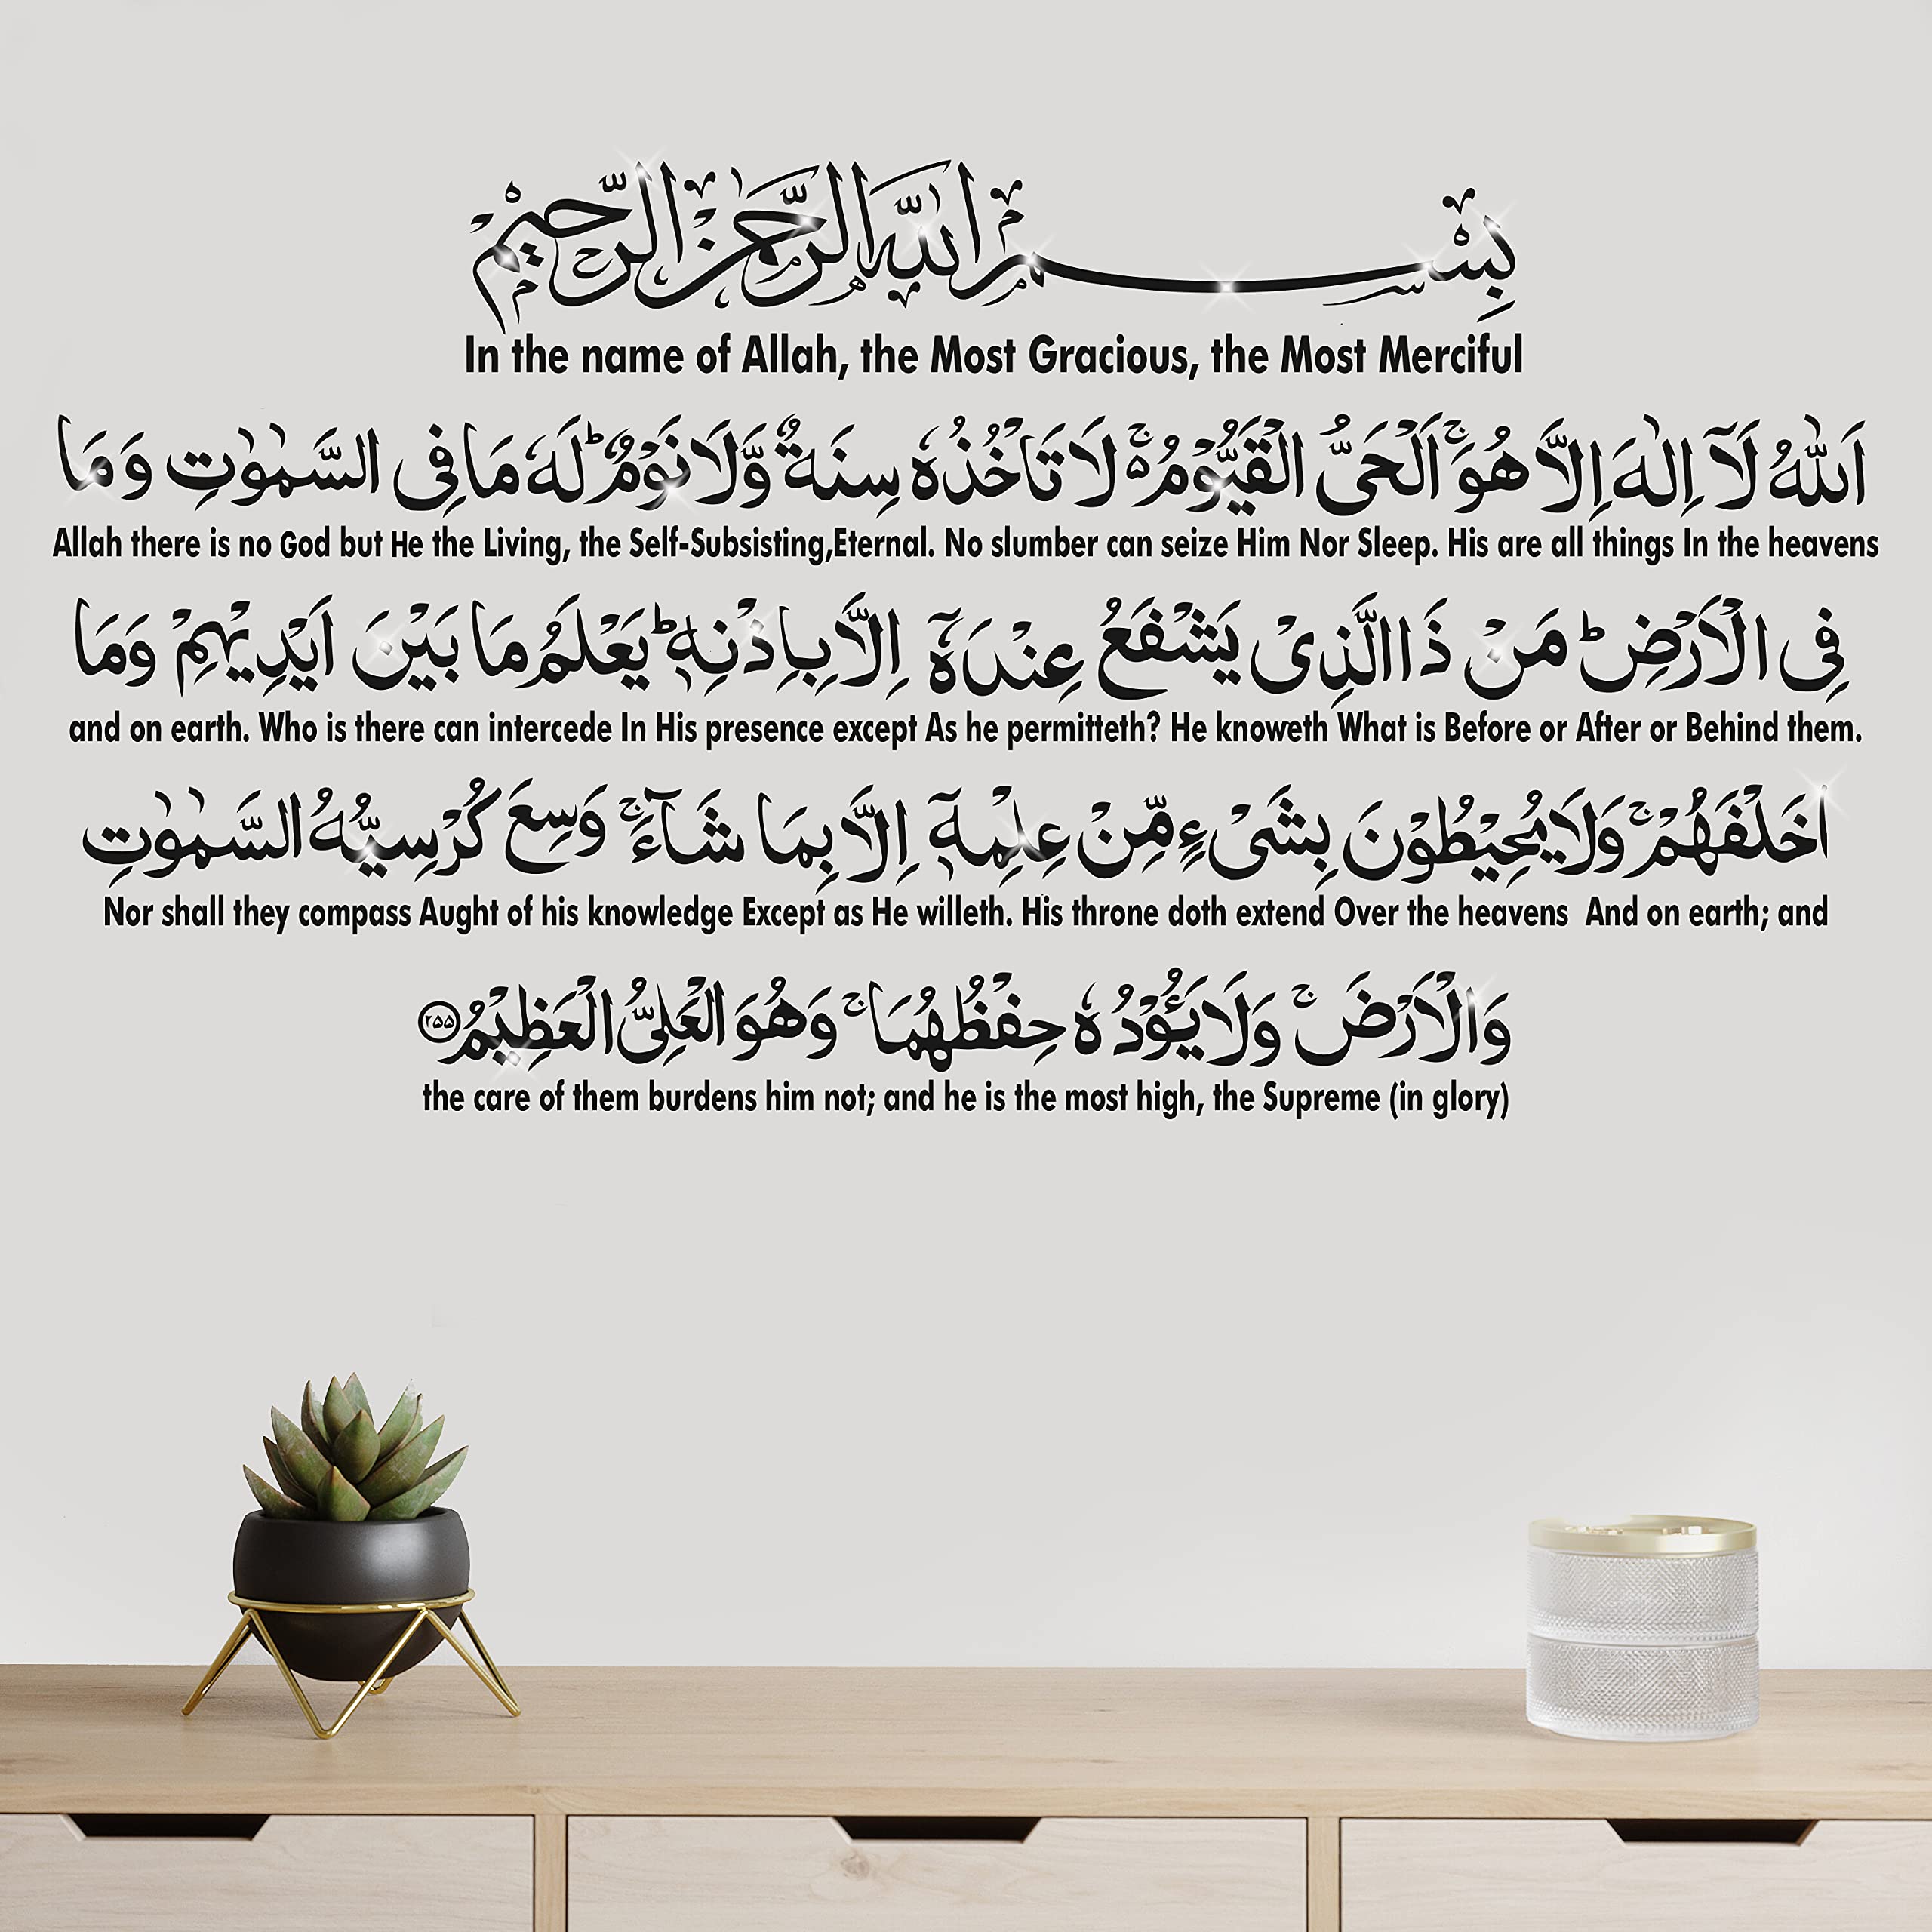 بِسْمِ اللهِ الرَّحْمٰنِ الرَّحِيْمِ
In the name of Allah, the Most Gracious, the Most Merciful
اَللّٰهُ لَآ اِلٰهَ اِلَّا هُوَۚ اَلْحَىُّ الْقَيُّوْمُ ەۚ لَا تَاْخُذُهٗ سِنَةٌ وَّلَا نَوْمٌؕ لَهٗ مَا فِى السَّمٰوٰتِ وَمَا
Allah there is no God but He the Living, the Self-Subsisting,Eternal. No slumber can seize Him Nor Sleep. His are all things In the heavens
فِى الْاَرْضِؕ مَنْ ذَا الَّذِىْ يَشْفَعُ عِنْدَهٗٓ اِلَّا بِاِذْنِهٖؕ يَعْلَمُ مَا بَيْنَ اَيْدِيْهِمْ وَمَا
and on earth. Who is there can intercede In His presence except As he permitteth? He knoweth What is Before or After or Behind them.
اخَلْفَهُمْۚ وَلَا يُحِيْطُوْنَ بِشَىْءٍ مِّنْ عِلْمِهٖٓ اِلَّا بِمَا شَآءَۚ وَسِعَ كُرْسِيُّهُ السَّمٰوٰتِ
Nor shall they compass Aught of his knowledge Except as He willeth. His throne doth extend Over the heavens And on earth; and
وَالْاَرْضَۚ وَلَا يَـُٔوْدُهٗ حِفْظُهُمَاۚ وَهُوَ الْعَلِىُّ الْعَظِيْمُ ۲۵۵
the care of them burdens him not; and he is the most high, the Supreme (in glory)